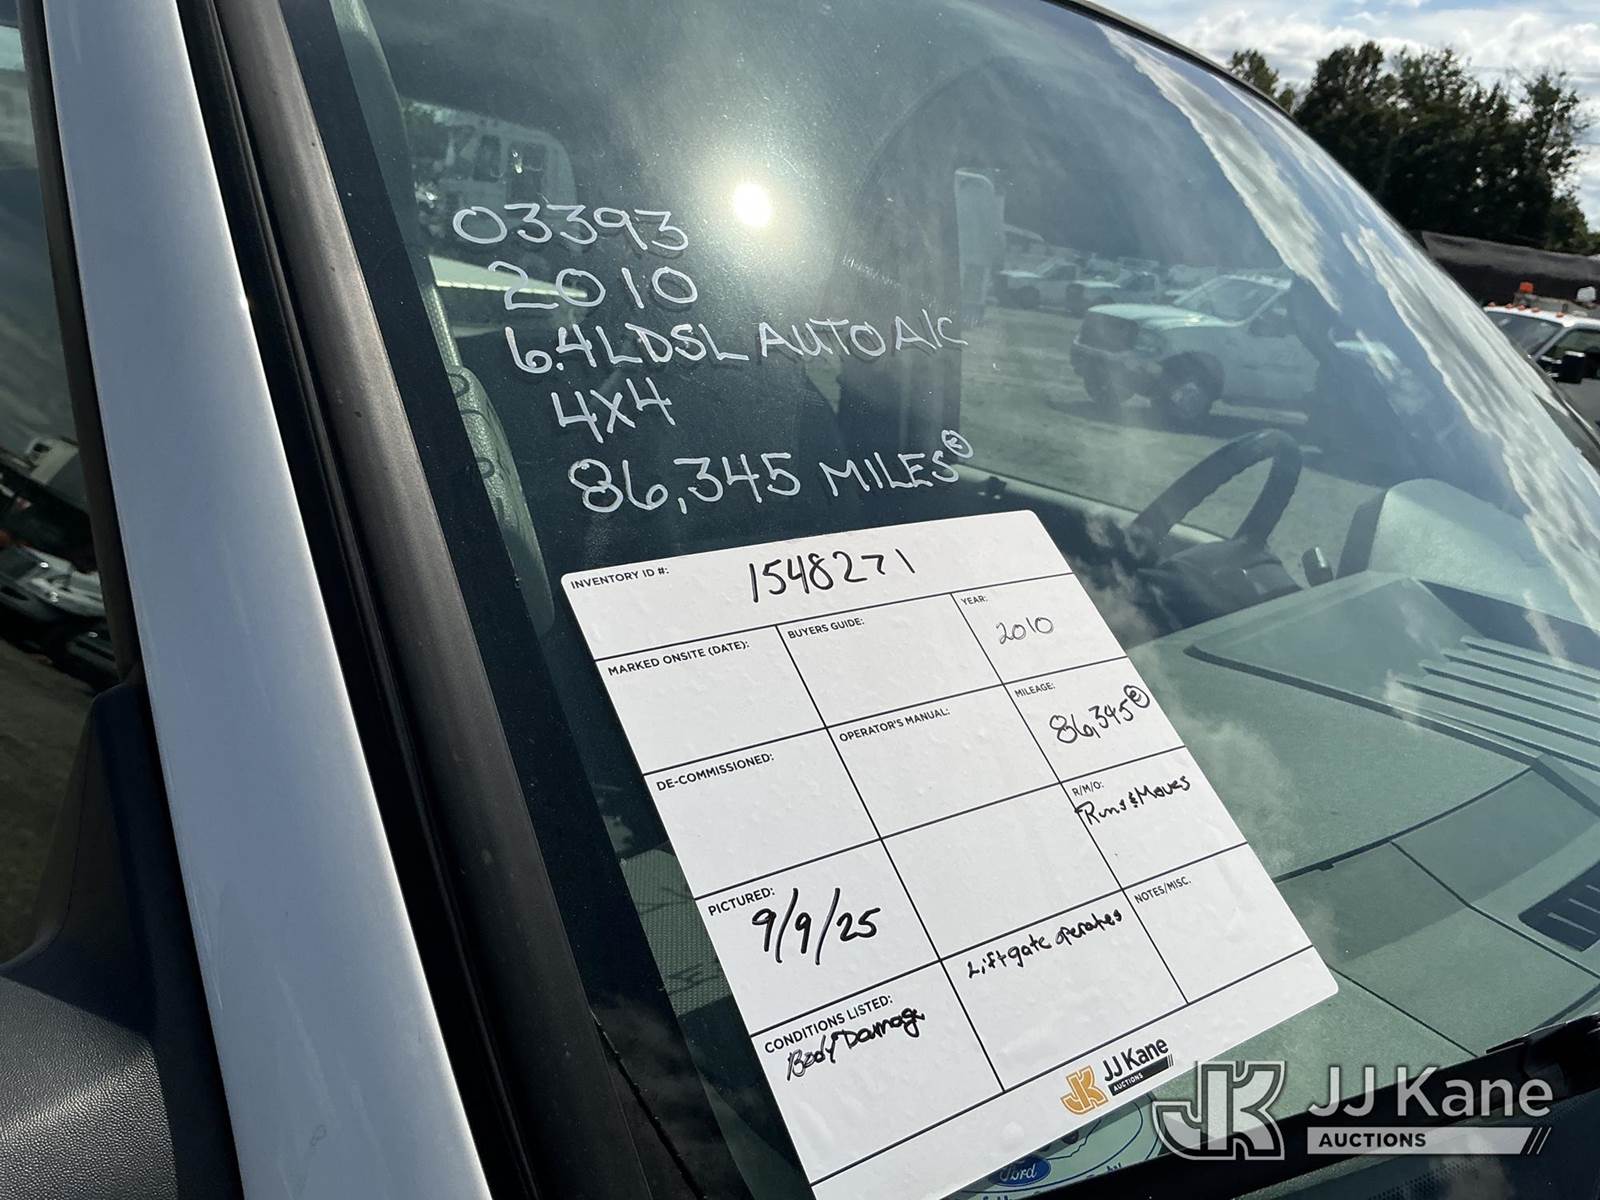 03393
2010
6.4L DSL AUTO A/C
4X4
86,345 MILES
INVENTORY ID #: 1548271
MARKED ONSITE (DATE):
BUYERS GUIDE:
YEAR: 2010
DE-COMMISSIONED:
OPERATOR'S MANUAL:
MILEAGE: 86,345
R/M/O: Runs & Moves
PICTURED: 9/9/25
CONDITIONS LISTED: Body Damage
Liftgate operates
NOTES/MISC.
JJ Kane
AUCTIONS
Ford
JJ Kane
AUCTIONS